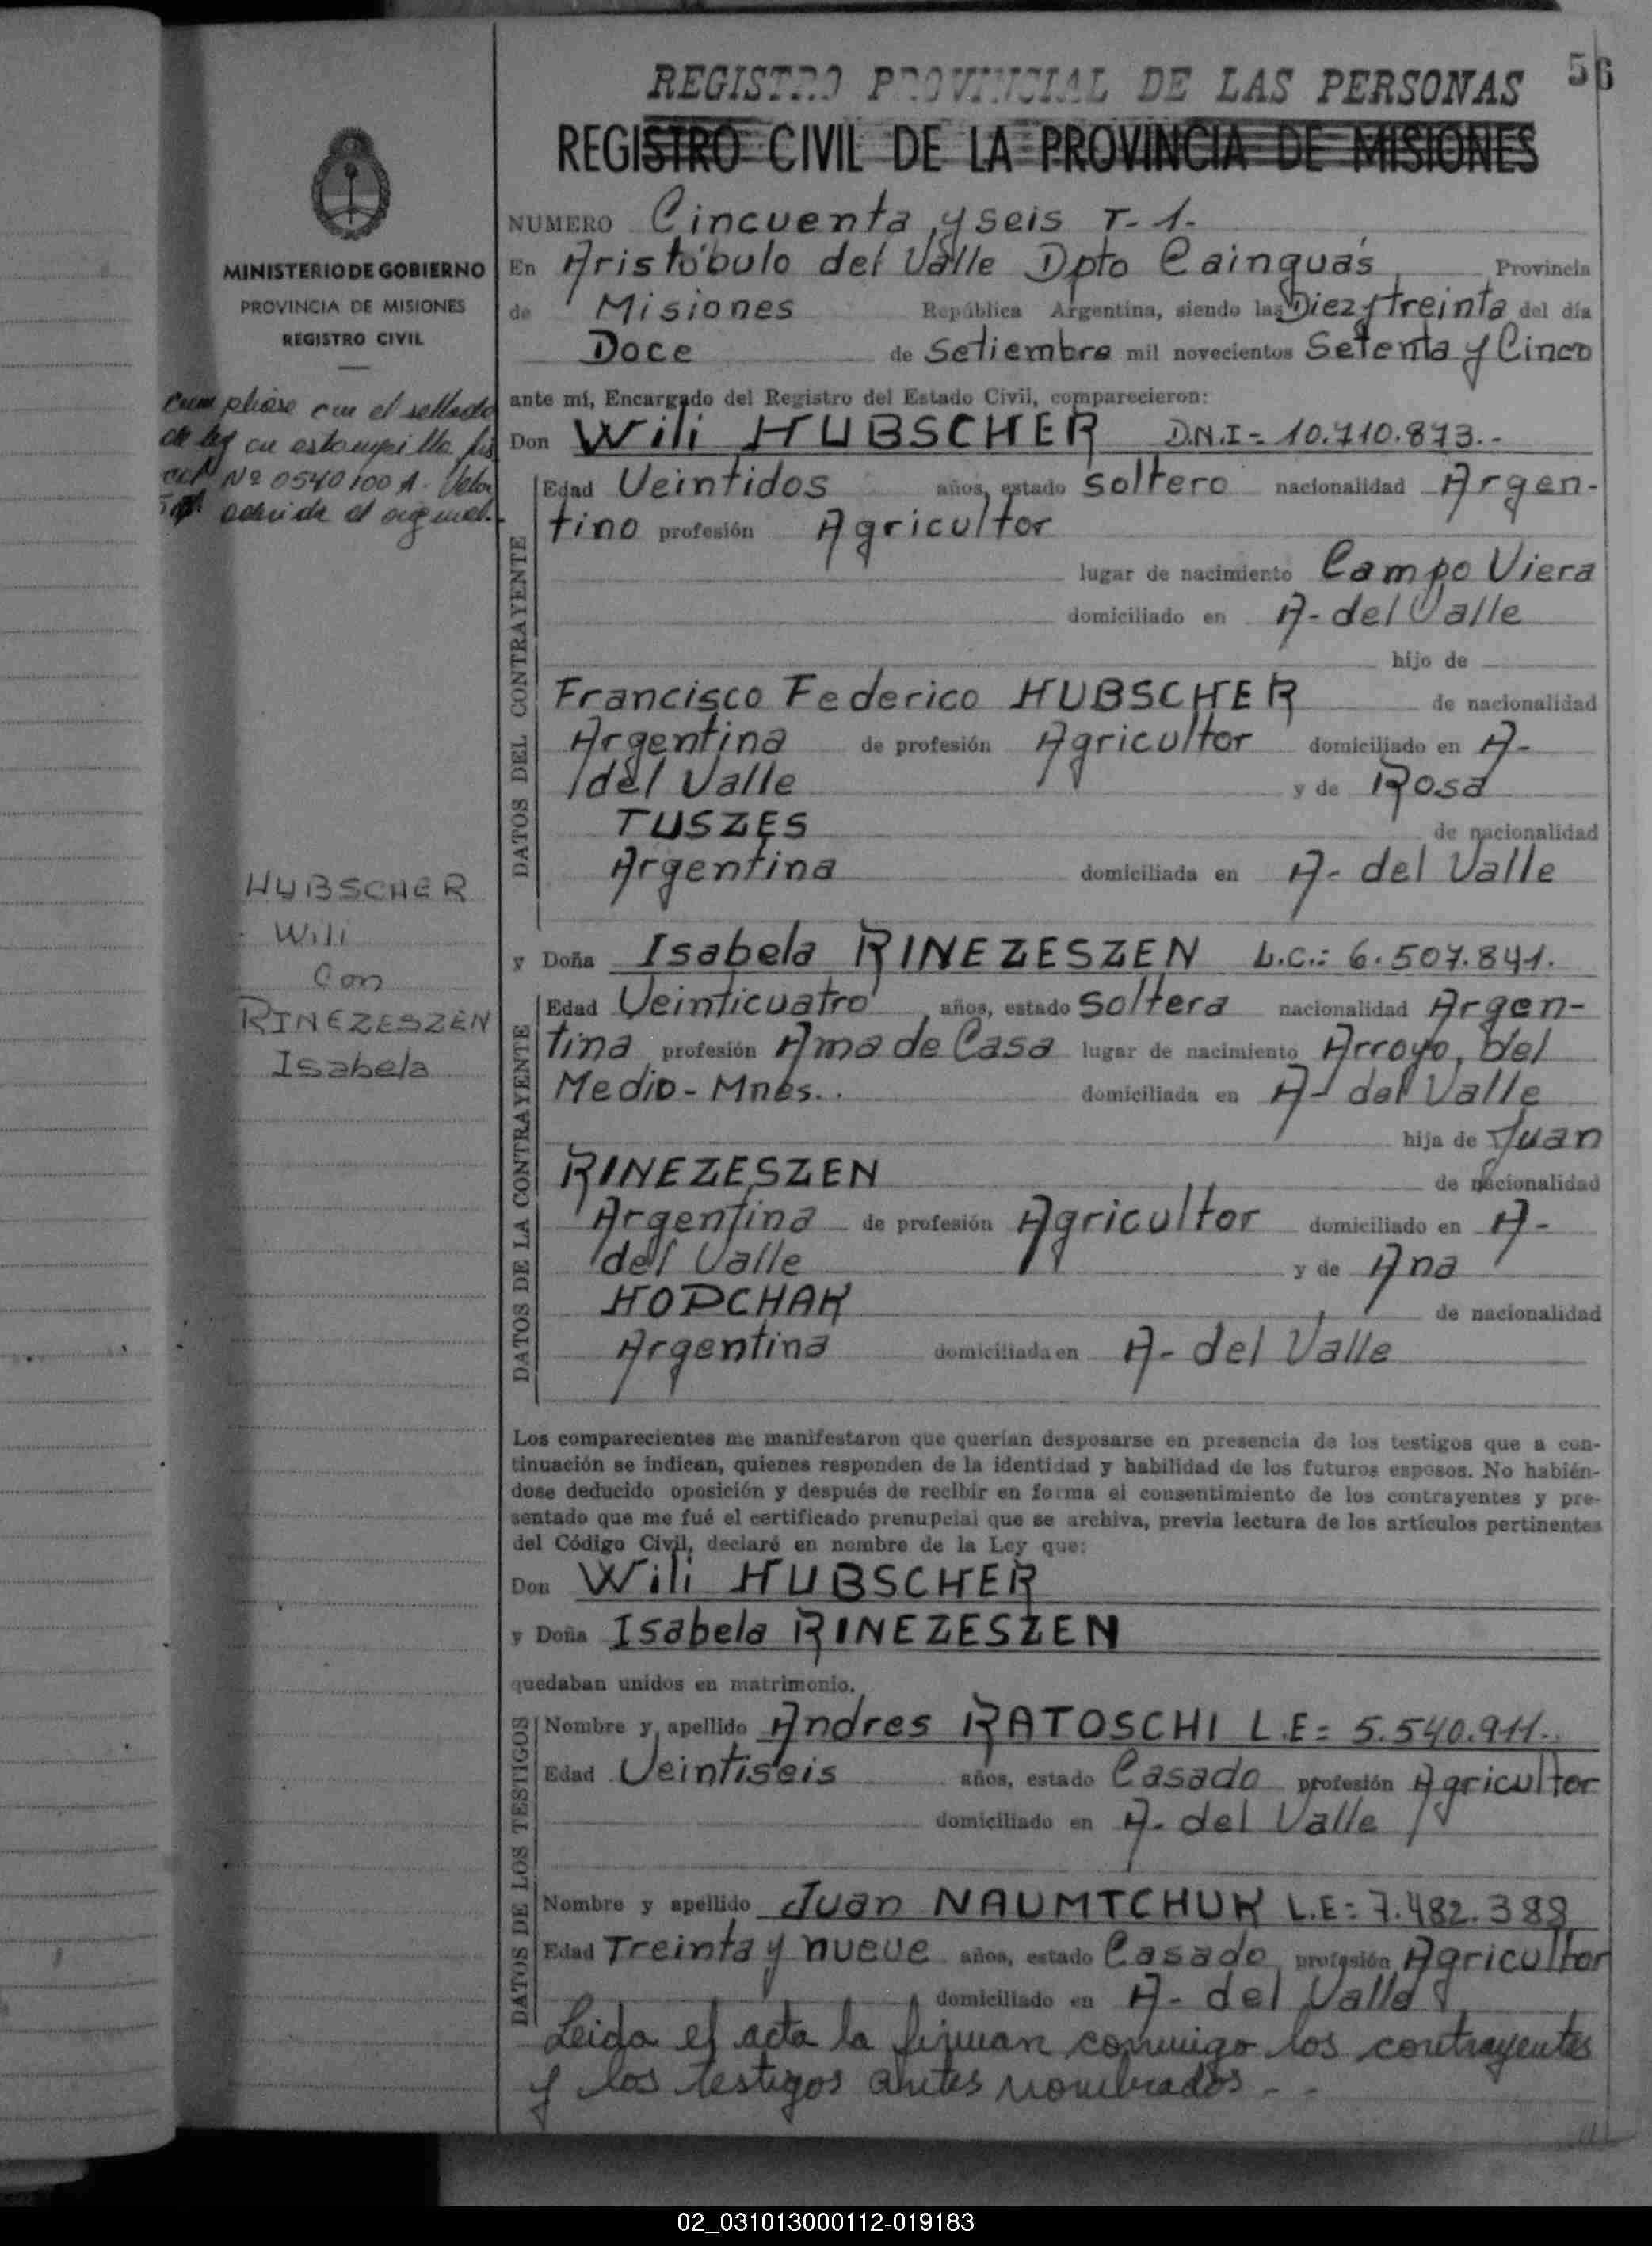 56
REGISTRO PROVINCIAL DE LAS PERSONAS
REGISTRO CIVIL DE LA PROVINCIA DE MISIONES
MINISTERIO DE GOBIERNO
PROVINCIA DE MISIONES
REGISTRO CIVIL
Cumpliose con el sellado
de ley en estampilla fis
cal Nº 0540100 A. Valor
el original.
HUBSCHER
Wili
Con
RINEZESZEN
Isabela
NUMERO Cincuenta y seis T-1-
En Aristóbulo del Valle Dpto Cainguás Provincia
de Misiones República Argentina, siendo las Diez y treinta del día
Doce de Setiembre mil novecientos Setenta y Cinco
ante mí, Encargado del Registro del Estado Civil, comparecieron:
Don Wili HUBSCHER D.N.I- 10.710.873.-
DATOS DEL CONTRAYENTE
Edad Veintidos años, estado soltero nacionalidad Argen-
tino profesión Agricultor
lugar de nacimiento Campo Viera
domiciliado en A- del Valle
hijo de
Francisco Federico HUBSCHER de nacionalidad
Argentina de profesión Agricultor domiciliado en A-
del Valle y de Rosa
TUSZES de nacionalidad
Argentina domiciliada en A- del Valle
y Doña Isabela RINEZESZEN L.C.: 6.507.841.
DATOS DE LA CONTRAYENTE
Edad Veinticuatro años, estado soltera nacionalidad Argen-
tina profesión Ama de Casa lugar de nacimiento Arroyo del
Medio- Mnes.. domiciliada en A- del Valle
hija de Juan
RINEZESZEN de nacionalidad
Argentina de profesión Agricultor domiciliado en A-
del Valle y de Ana
HOPCHAK de nacionalidad
Argentina domiciliada en A- del Valle
Los comparecientes me manifestaron que querían desposarse en presencia de los testigos que a con-
tinuación se indican, quienes responden de la identidad y habilidad de los futuros esposos. No habién-
dose deducido oposición y después de recibir en forma el consentimiento de los contrayentes y pre-
sentado que me fué el certificado prenupcial que se archiva, previa lectura de los artículos pertinentes
del Código Civil, declaré en nombre de la Ley que:
Don Wili HUBSCHER
y Doña Isabela RINEZESZEN
quedaban unidos en matrimonio.
DATOS DE LOS TESTIGOS
Nombre y apellido Andres RATOSCHI L.E= 5.540.911..
Edad Veintiseis años, estado Casado profesión Agricultor
domiciliado en A. del Valle
Nombre y apellido Juan NAUMTCHUK L.E: 7.482.388
Edad Treinta y nueve años, estado Casado profesión Agricultor
domiciliado en A- del Valle
Leida el acta la firman conmigo los contrayentes
y los testigos antes nombrados - -
02_031013000112-019183